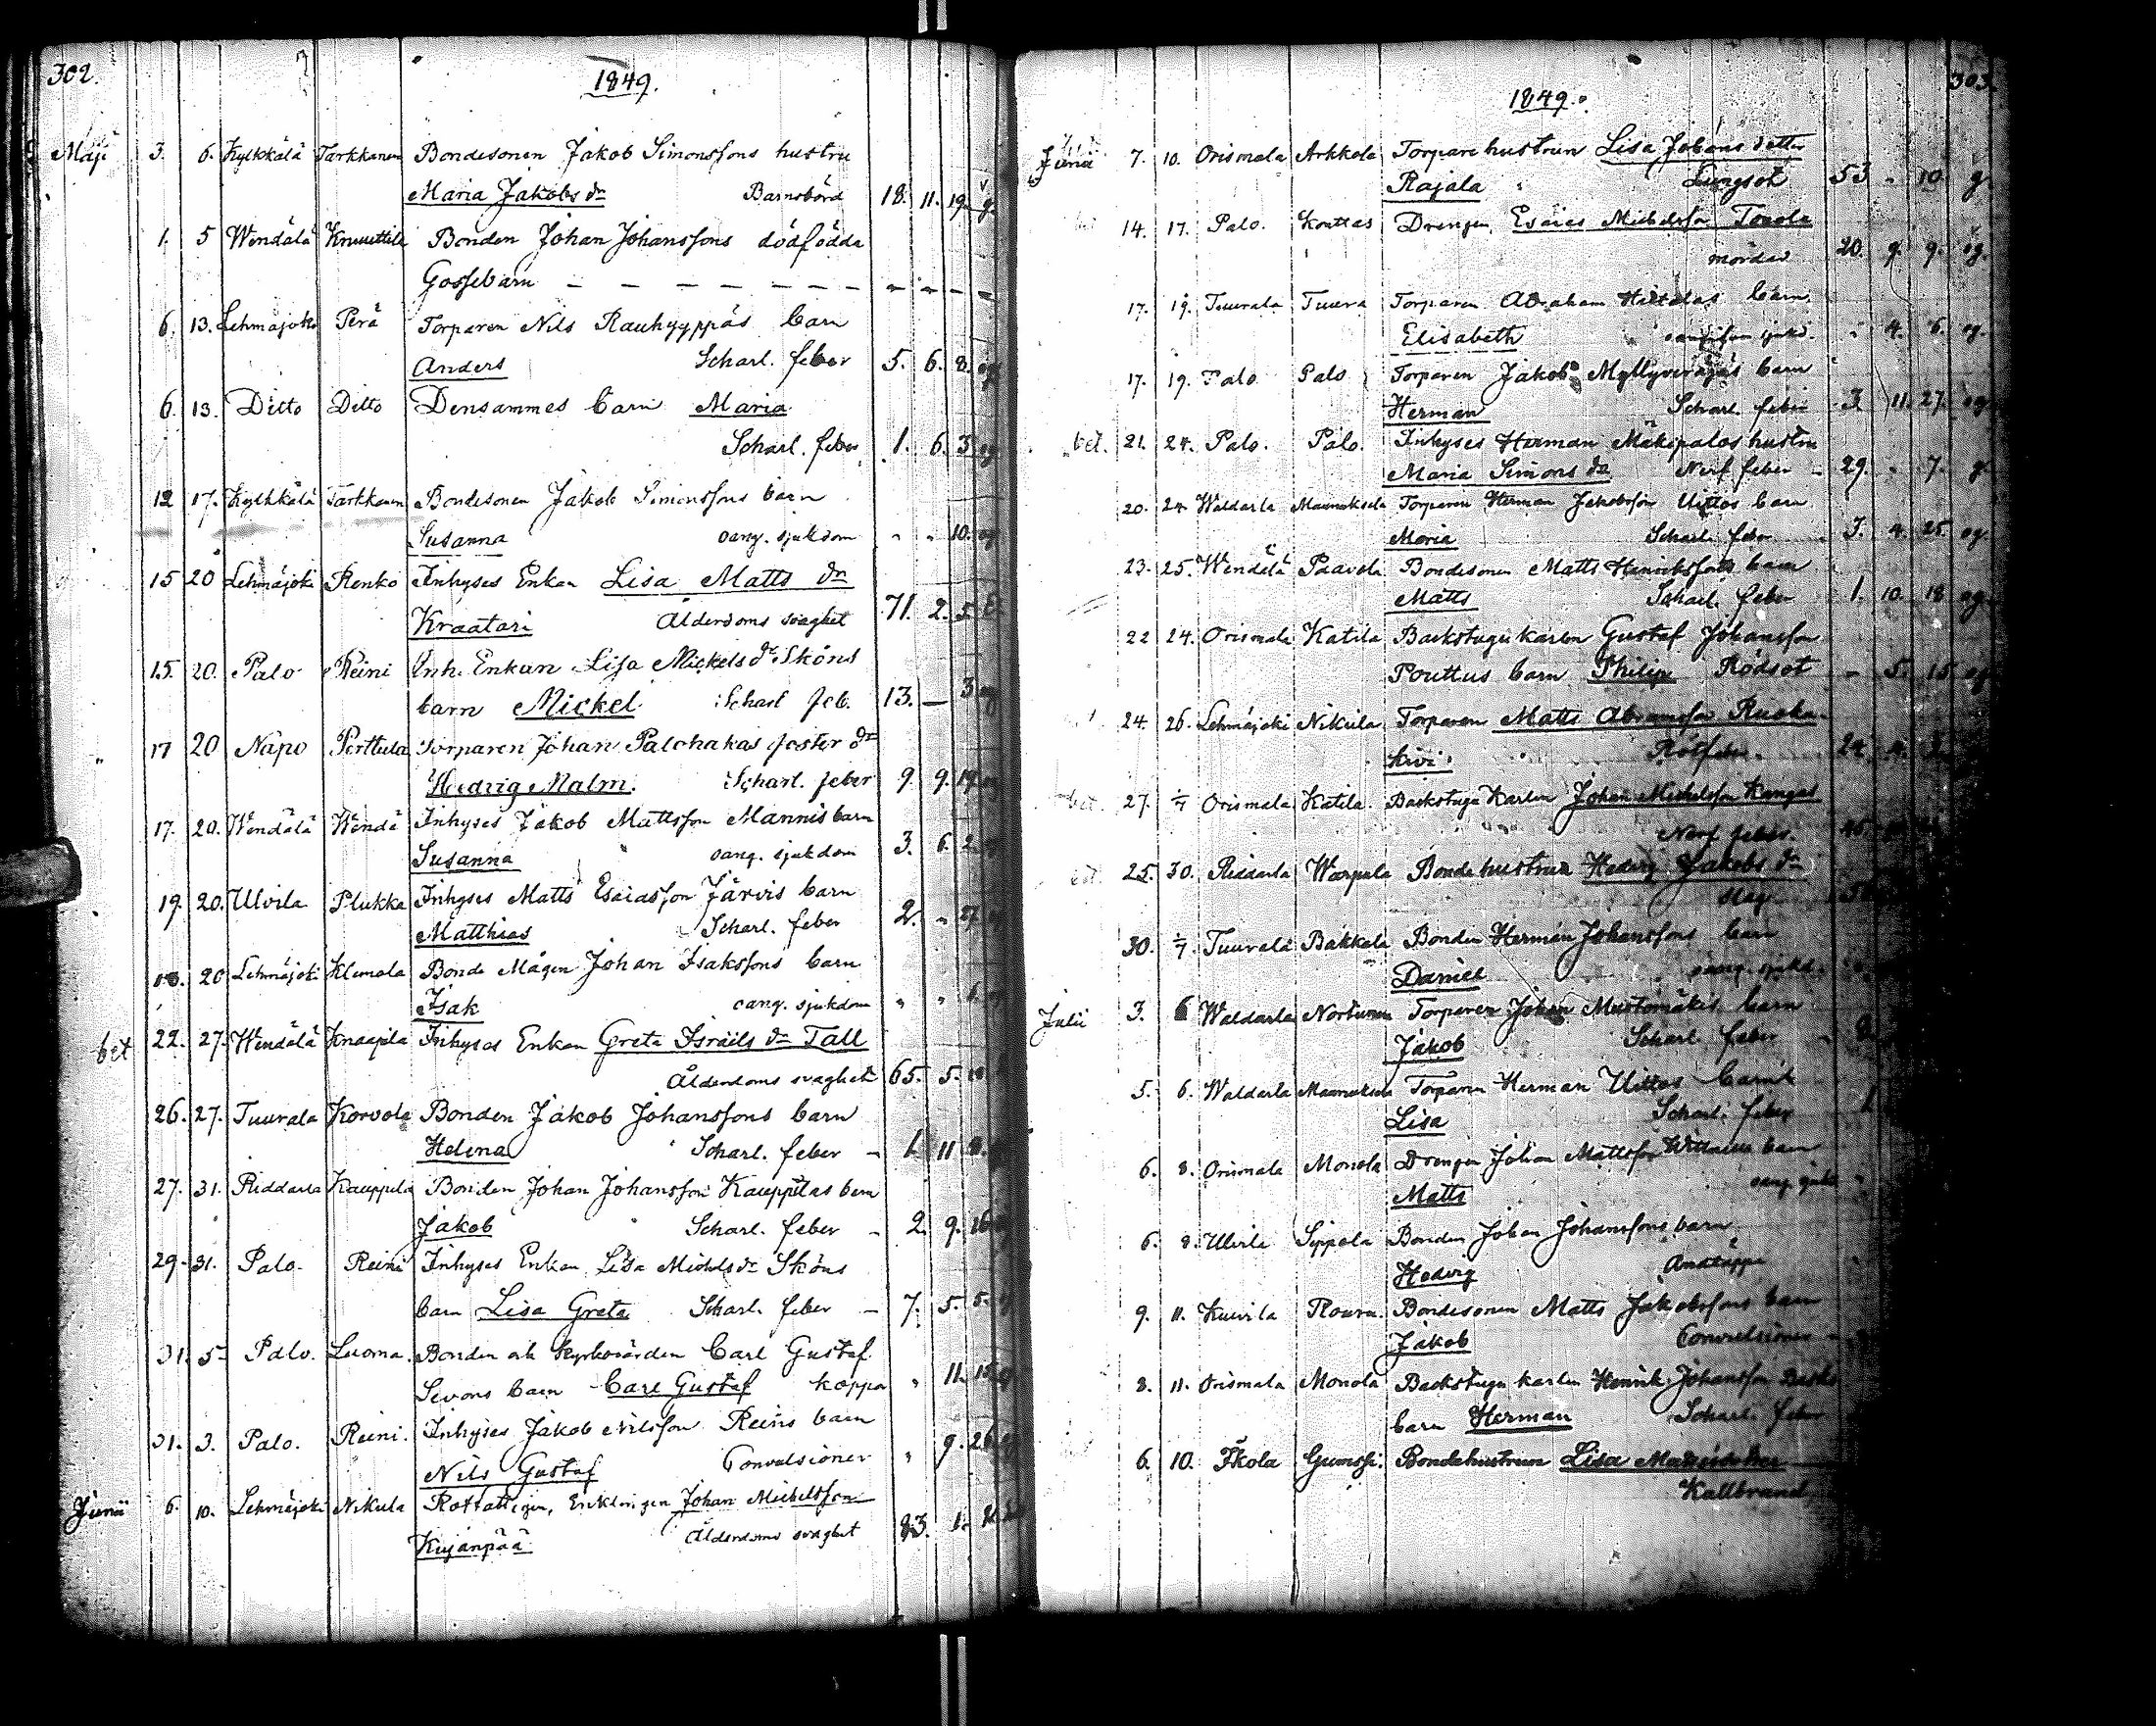 302.
1849.
Maji 3. 6. Kylkkälä Tarkkanen Bondesonen Jakob Simonssons hustru
Maria Jakobs dr Barnsbörd 18. 11. 19. g.
1. 5 Wendälä Knuuttila Bonden Johan Johanssons dödfödda
Gossebarn — — — — — — — — —
6. 13. Lehmäjoki Perä Torparen Nils Rauhyyppäs barn
Anders Scharl. feber 5. 6. 8. og
6. 13. Ditto Ditto Densammes barn Maria
Scharl. feber 1. 6. 3 og
12 17. Kylkkälä Tarkkanen Bondesonen Jakob Simonssons barn
Susanna oang. sjukdom - - 10. og
15 20 Lehmäjoki Renko Inhyses Enkan Lisa Matts dr
Kraatari Ålderdoms svaghet 71. 2. 5. E.
15. 20. Palo Reini Inh. Enkan Lisa Mickels dr Sköns
barn Mickel Scharl feb. 13. — 3 og
" 17 20 Napo Perttula Torparen Johan Palohakas foster dr
Hedvig Malm. Scharl. feber 9. 9. 19. og
17. 20. Wendälä Wendä Inhyses Jakob Mattsson Mannis barn
Susanna oang. sjukdom 3. 6. 2.
19. 20. Ulvila Plukka Inhyses Matts Esaiasson Järvis barn
Matthias Scharl. feber 2. - 27.
18. 20 Lehmäjoki Klemola Bonde Mågen Johan Isakssons barn
Isak oang. sjukdom " " 6.
bet 22. 27. Wendälä Knaapila Inhyses Enkan Greta Israels dr Tall
Ålderdoms svaghet 65. 5.
26. 27. Tuurala Korvola Bonden Jakob Johanssons barn
Helena Scharl. feber - 1. 11
27. 31. Riddarla Kauppila Bonden Johan Johansson Kauppilas barn
Jakob Scharl. feber - 2. 9. 16
29. 31. Palo. Reini Inhyses Enkan Lisa Mickels dr Sköns
barn Lisa Greta Scharl. feber - 7. 5. 5.
31. 5 Palo. Luoma. Bonden och Kyrkovärden Carl Gustaf
Sevons barn Carl Gustaf koppor " 11. 15
31. 3. Palo. Reini. Inhyses Jakob Nilsson Reinis barn
Nils Gustaf Convulsioner " 9. 26
Junii 6. 10. Lehmäjoki Nikula Rotfattigen, Enklingen Johan Mickelsson
Kujanpää Ålderdoms svaghet 83. 1.
303.
1849.
Junii 7. 10. Orismala Arkkola Torpare hustrun Lisa Johans dotter
Rajala Lungsot 53 - 10. g.
14. 17. Palo. Kouttas Drengen Esaias Mickelsson Tuuola
mördad 20. 9. 9. og.
17. 19. Tuurala Tuura Torparen Abraham Hietalas barn
Elisabeth sjukd. - 4. 6. og.
17. 19. Palo Palo Torparen Jakob Myllyverajäs barn
Herman Scharl. feber 3. 11. 27. og
bet. 21. 24. Palo. Palo. Inhyses Herman Mäkipalos hustru
Maria Simons dr Nerf feber - 29. - 7. g.
20. 24 Waldarla Maunuksela Torparen Herman Jakobsson Uittos barn
Maria Scharl. feber 3. 4. 25. og.
23. 25. Wendälä Paavola Bondesonen Matts Henrikssons barn
Matts Scharl. feber 1. 10. 18 og.
22 24. Orismala Katila Backstugu karlen Gustaf Johansson
Pouttus barn Philip Rödsot - 5. 15 og
24. 26. Lehmäjoki Nikula Torparen Matts Abramsson Ruoka-
kivi Rötfeber. 24.
bet. 27. 1/7 Orismala Katila. Backstugu Karlen Johan Mickelsson Kangas
Nerf feber.
bet. 25. 30. Riddarla Warpala Bonde hustrun Hedvig Jakobs dr
Slag
30. 1/7. Tuurala Bakkala Bonden Herman Johanssons barn
Daniel oang. sjukd.
Julii 3. 6 Waldarla Nortunen Torparen Johan Mustomäkis barn
Jakob Scharl. feber - 2
5. 6. Waldarla Maunuksela Torparen Herman Uittos barn
Lisa Scharl. feber 1.
6. 8. Orismala Monola Drengen Johan Mattsson barn
Matts oang. sjukd
6. 8. Ulvila Sippola Bonden Johan Johanssons barn
Hedvig Andtäppa
9. 11. Kuivila Roura. Bondesonen Matts Jakobssons barn
Jakob Convulsioner -
8. 11. Orismala Monola Backstugu karlen Henrik Johansson
barn Herman Scharl. feber
6. 10. Ikola Gumssi. Bondehustrun Lisa
Kallbrand